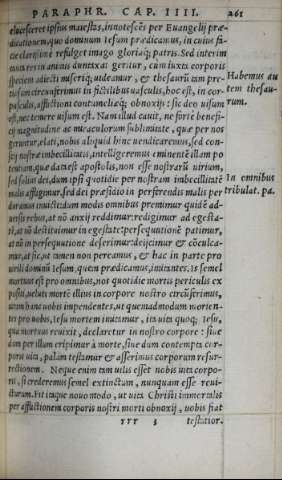 PARAPHR. CAP. IIII. 261
elucesceret ipsius maiestas, innotescēs per Euangelij præ-
dicationem, quo dominum Iesum prædicamus, in cuius fa-
cie clarissime refulget imago gloriæq; patris. Sed interim
geritur, cum iuxta corporis
speciem abiecti miseriq; uideamur, & thesaurū tam pre-
tiosum circunferimus in fictilibus uasculis, hoc est, in cor-
pusculis, afflictioni contumeliæq; obnoxijs: sic deo uisum
est, nec temere uisum est. Nam illud cauit, ne forte benefi-
cij magnitudine ac miraculorum sublimitate, quæ per nos
geruntur, elati, nobis aliquid hinc uendicaremus, sed con-
scij nostræ imbecillitatis, intelligeremus eminentē illam po
tentiam, quæ data est apostolis, non esse nostrarū uirium,
sed solius dei, dum ipsi quotidie per nostram imbecillitatē
malis affligimur, sed dei præsidio in perferendis malis per
duramus inuicti: dum modis omnibus premimur quidē ad-
uersis rebus, at nō anxij reddimur: redigimur ad egesta-
tē, at nō destituimur in egestate: persequutionē patimur,
at nō in persequutione deserimur: deijcimur & cōculca-
mur, at sic, ut tamen non pereamus, & hac in parte pro
uirili dominū Iesum, quem prædicamus, imitantes. Is semel
mortuus est pro omnibus, nos quotidie mortis periculis ex
positi, uelut mortē illius in corpore nostro circūferimus,
uitam hanc uobis impendentes, ut quemadmodum morien-
tes pro nobis, Iesu mortem imitamur, ita uita quoq; Iesu,
qua mortuus reuixit, declaretur in nostro corpore: siue
dum per illum eripimur à morte, siue dum contempta cor-
poris uita, palàm testamur & asserimus corporum resur-
rectionem. Neque enim tam uilis esset nobis uita corpo-
ris, si crederemus semel extinctum, nunquam esse reui-
cturum. Fit itaque nouo modo, ut uita Christi immortalis
per afflictionem corporis nostri morti obnoxij, uobis fiat
yyy 3 testatior.
Habemus au
tem thesau-
rum.
In omnibus
tribulat. pa.